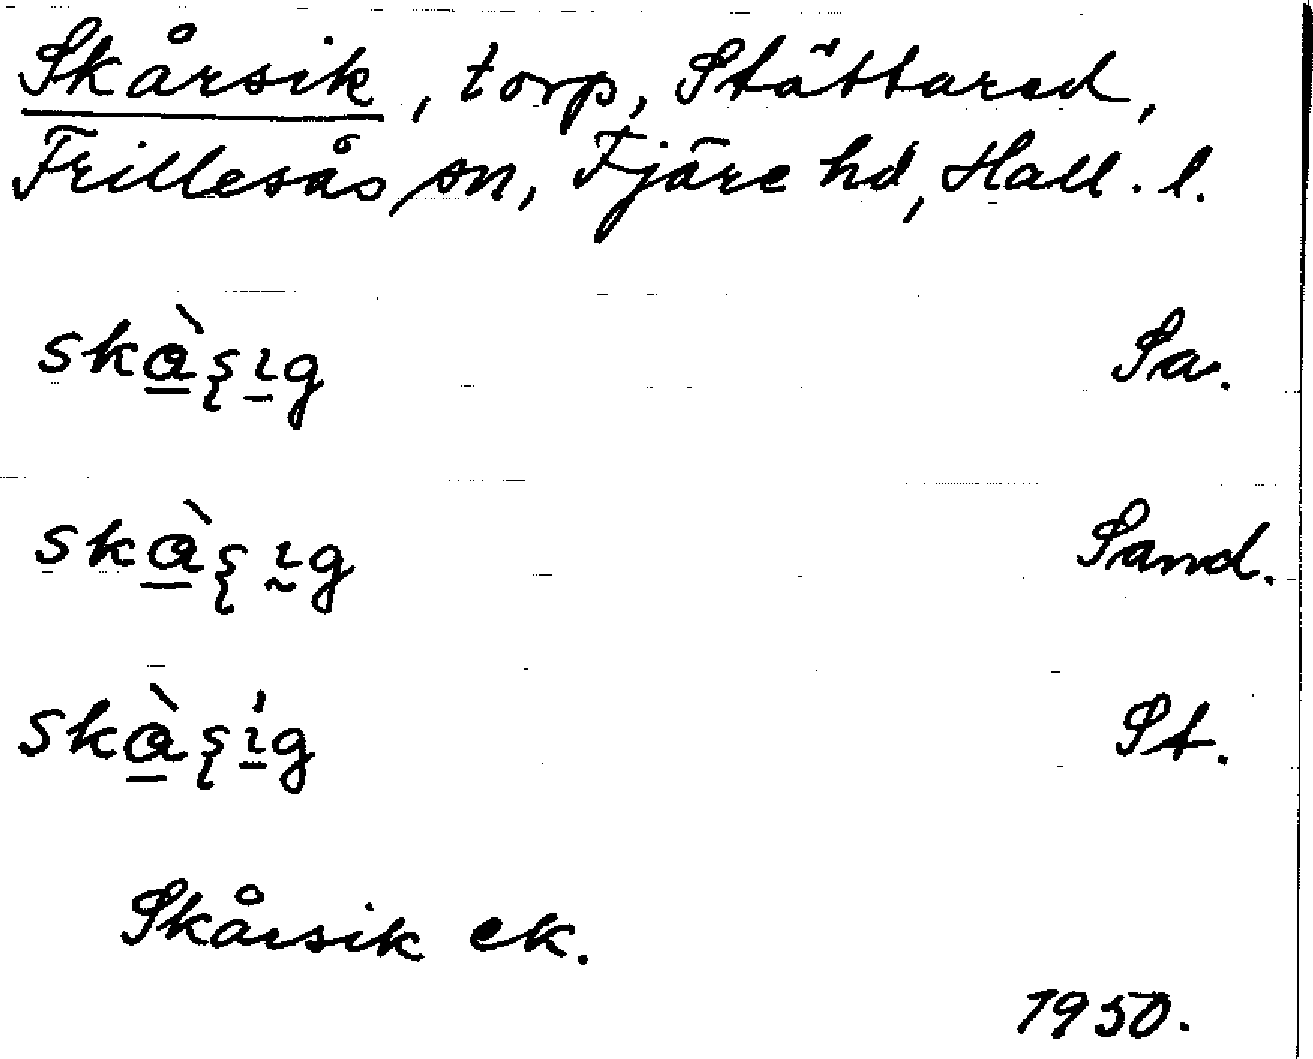 Skårsik, torp, Stättared,
Frillesås sn, Fjäre hd, Hall. l.
skàʂıg Sa.
skàʂıg Sand.
skàʂıg St.
Skårsik ek.
1950.